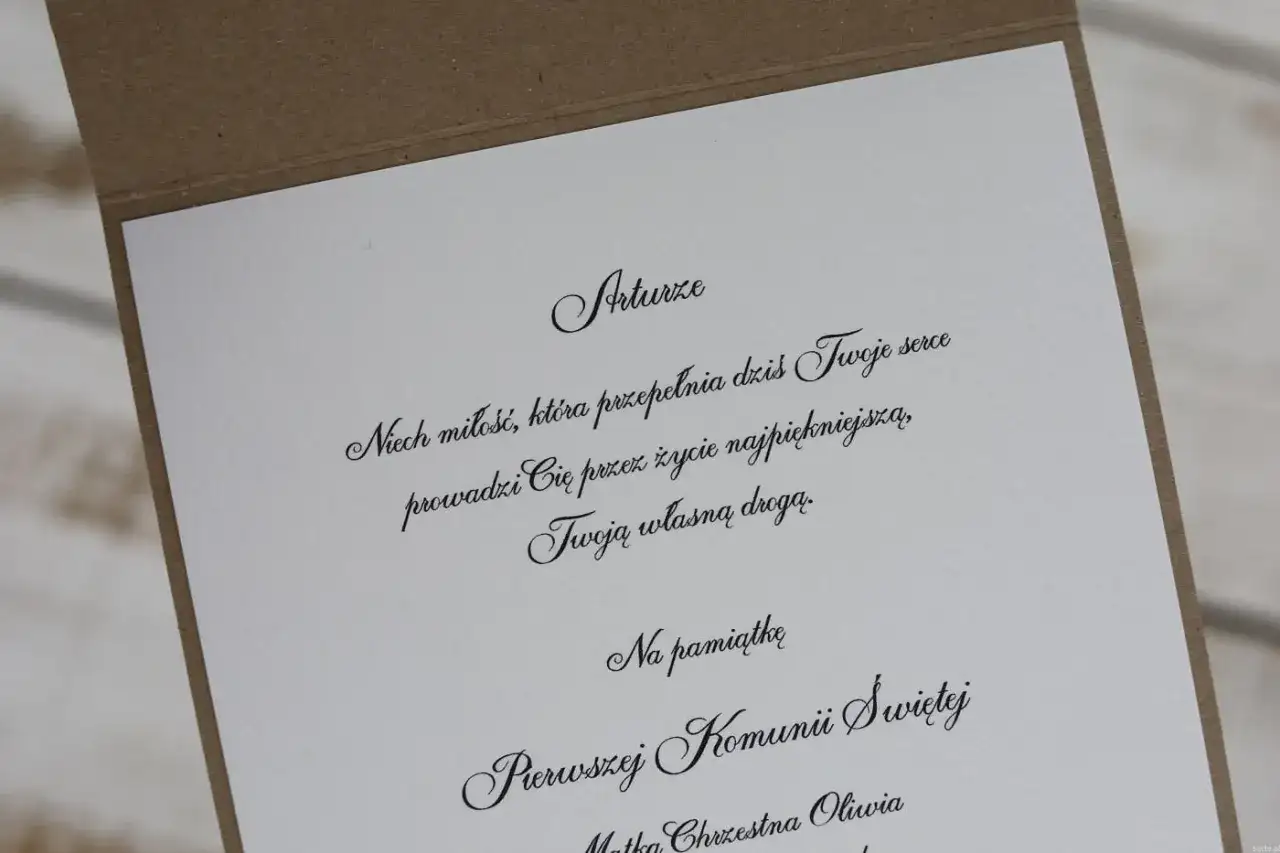 Arturze
Niech miłość, która przepełnia dziś Twoje serce
prowadzi Cię przez życie najpiękniejszą,
Twoją własną drogą.
Na pamiątkę
Pierwszej Komunii Świętej
Matka Chrzestna Oliwia